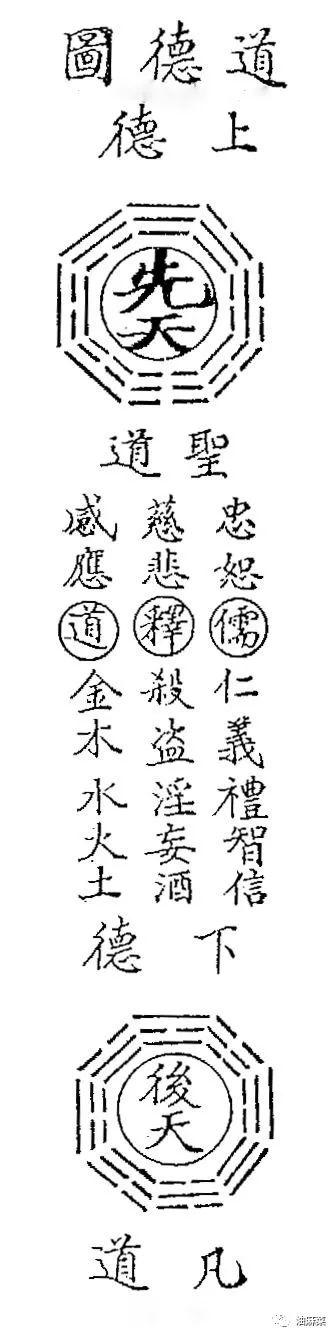 道德圖
上德
先天
聖道
忠恕儒仁義禮智信
慈悲釋殺盜淫妄酒
感應道金木水火土
下德
後天
凡道
油麻菜